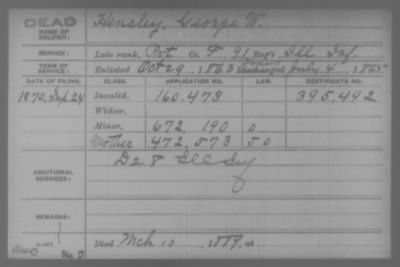 DEAD
NAME OF SOLDIER:
Hensley, George W.
SERVICE:
Late rank, Pvt. Co. F, 91, Reg't Ill. Inf.
TERM OF SERVICE:
Enlisted Oct 29, 1863 Discharged July 4, 1865
DATE OF FILING. CLASS. APPLICATION NO. LAW. CERTIFICATE NO.
1870, Sep 24 Invalid, 160,473 395,492
Widow,
Minor, 672,190 0
Mother 472,573 50
ADDITIONAL SERVICES:
REMARKS:
Died Mch 10, 1889, at